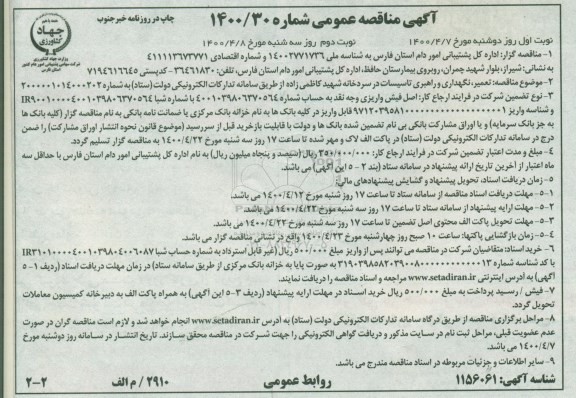 آگهی مناقصه عمومی شماره ۱۴۰۰/۳۰
چاپ در روزنامه خبر جنوب
جهاد کشاورزی
وزارت جهاد کشاورزی
شرکت سهامی پشتیبانی امور دام کشور
نوبت اول روز دوشنبه مورخ ۱۴۰۰/۴/۷ نوبت دوم روز سه شنبه مورخ ۱۴۰۰/۴/۸
۱- مناقصه گزار: اداره کل پشتیبانی امور دام استان فارس به شناسه ملی ۱۴۰۰۲۷۷۱۷۳۶ و شماره اقتصادی ۴۱۱۱۱۳۶۷۳۷۷۱
به نشانی: شیراز، بلوار شهید چمران، روبروی بیمارستان حافظ، اداره کل پشتیبانی امور دام استان فارس، تلفن: ۳۶۴۶۱۸۳۰- کدپستی ۷۱۹۴۶۱۶۶۴۵
۲- موضوع مناقصه: تعمیر، نگهداری و راهبری تاسیسات در سردخانه شهید کاظمی زاده از طریق سامانه تدارکات الکترونیکی دولت (ستاد) به شماره ۲۰۰۰۰۰۱۰۱۴۰۰۰۲۰۲
۳- نوع تضمین شرکت در فرایند ارجاع کار: اصل فیش واریزی وجه نقد به حساب شماره ۴۰۰۱۰۳۹۸۰۶۳۷۰۵۶۴ با شماره شبا
و شناسه واریز قابل واریز در کلیه بانک ها به نام خزانه بانک مرکزی یا ضمانت نامه بانکی به نام مناقصه گزار (کلیه بانک ها
به جز بانک سرمایه) و یا اوراق مشارکت بانکی بی نام تضمین شده بانک ها و دولت با قابلیت بازخرید قبل از سررسید (موضوع قانون نحوه انتشار اوراق مشارکت) را ضمن
درج در سامانه تدارکات الکترونیکی دولت (ستاد) در پاکت الف لاک و مهر شده تا ساعت ۱۷ روز سه شنبه مورخ ۱۴۰۰/۴/۲۲ به مناقصه گزار تسلیم گردد.
۴- مبلغ و مدت اعتبار تضمین شرکت در فرایند ارجاع کار: ۳۵۰/۰۰۰/۰۰۰ ریال (سیصد و پنجاه میلیون ریال) به نام اداره کل پشتیبانی امور دام استان فارس با حداقل سه
ماه اعتبار از آخرین تاریخ ارائه پیشنهاد در سامانه ستاد (بند ۲-۵ این آگهی) می باشد.
۵- زمان دریافت اسناد، تحویل پیشنهاد و گشایش پیشنهادهای مالی:
۱-۵- مهلت دریافت اسناد مناقصه از سامانه ستاد تا ساعت ۱۷ روز شنبه مورخ ۱۴۰۰/۴/۱۲ می باشد.
۲-۵- مهلت ارایه پیشنهاد از سامانه ستاد تا ساعت ۱۷ روز سه شنبه مورخ ۱۴۰۰/۴/۲۲ می باشد.
۳-۵- مهلت تحویل پاکت الف محتوی اصل تضمین تا ساعت ۱۷ روز سه شنبه مورخ ۱۴۰۰/۴/۲۲ می باشد.
۴-۵- زمان بازگشایی پاکتها: ساعت ۱۰ صبح روز چهارشنبه مورخ ۱۴۰۰/۴/۲۳ واقع در نشانی مناقصه گزار می باشد.
۶- خرید اسناد: متقاضیان شرکت در مناقصه می توانند پس از واریز مبلغ ۵۰۰/۰۰۰ ریال (غیر قابل استرداد) به شماره حساب شبا
با کد شناسه شماره به صورت پایا به خزانه بانک مرکزی از طریق سامانه ستاد) در زمان مهلت دریافت اسناد (ردیف ۱-۵
آگهی) به آدرس اینترنتی www.setadiran.ir مراجعه و اسناد مناقصه را دریافت نمایند.
۷- فیش / رسید پرداخت به مبلغ ۵۰۰/۰۰۰ ریال خرید اسناد در مهلت ارایه پیشنهاد (ردیف ۳-۵ این آگهی) به همراه پاکت الف به دبیرخانه کمیسیون معاملات
تحویل گردد.
۸- مراحل برگزاری مناقصه از طریق درگاه سامانه تدارکات الکترونیکی دولت (ستاد) به آدرس www.setadiran.ir انجام خواهد شد و لازم است مناقصه گران در صورت
عدم عضویت قبلی، مراحل ثبت نام در سایت مذکور و دریافت گواهی الکترونیکی را جهت شرکت در مناقصه محقق سازند. تاریخ انتشار در سامانه روز دوشنبه مورخ
۱۴۰۰/۴/۷ می باشد.
۹- سایر اطلاعات و جزئیات مربوطه در اسناد مناقصه مندرج می باشد.
شناسه آگهی: ۱۱۵۶۰۶۱ روابط عمومی ۲۹۱۰ / م الف ۲-۲